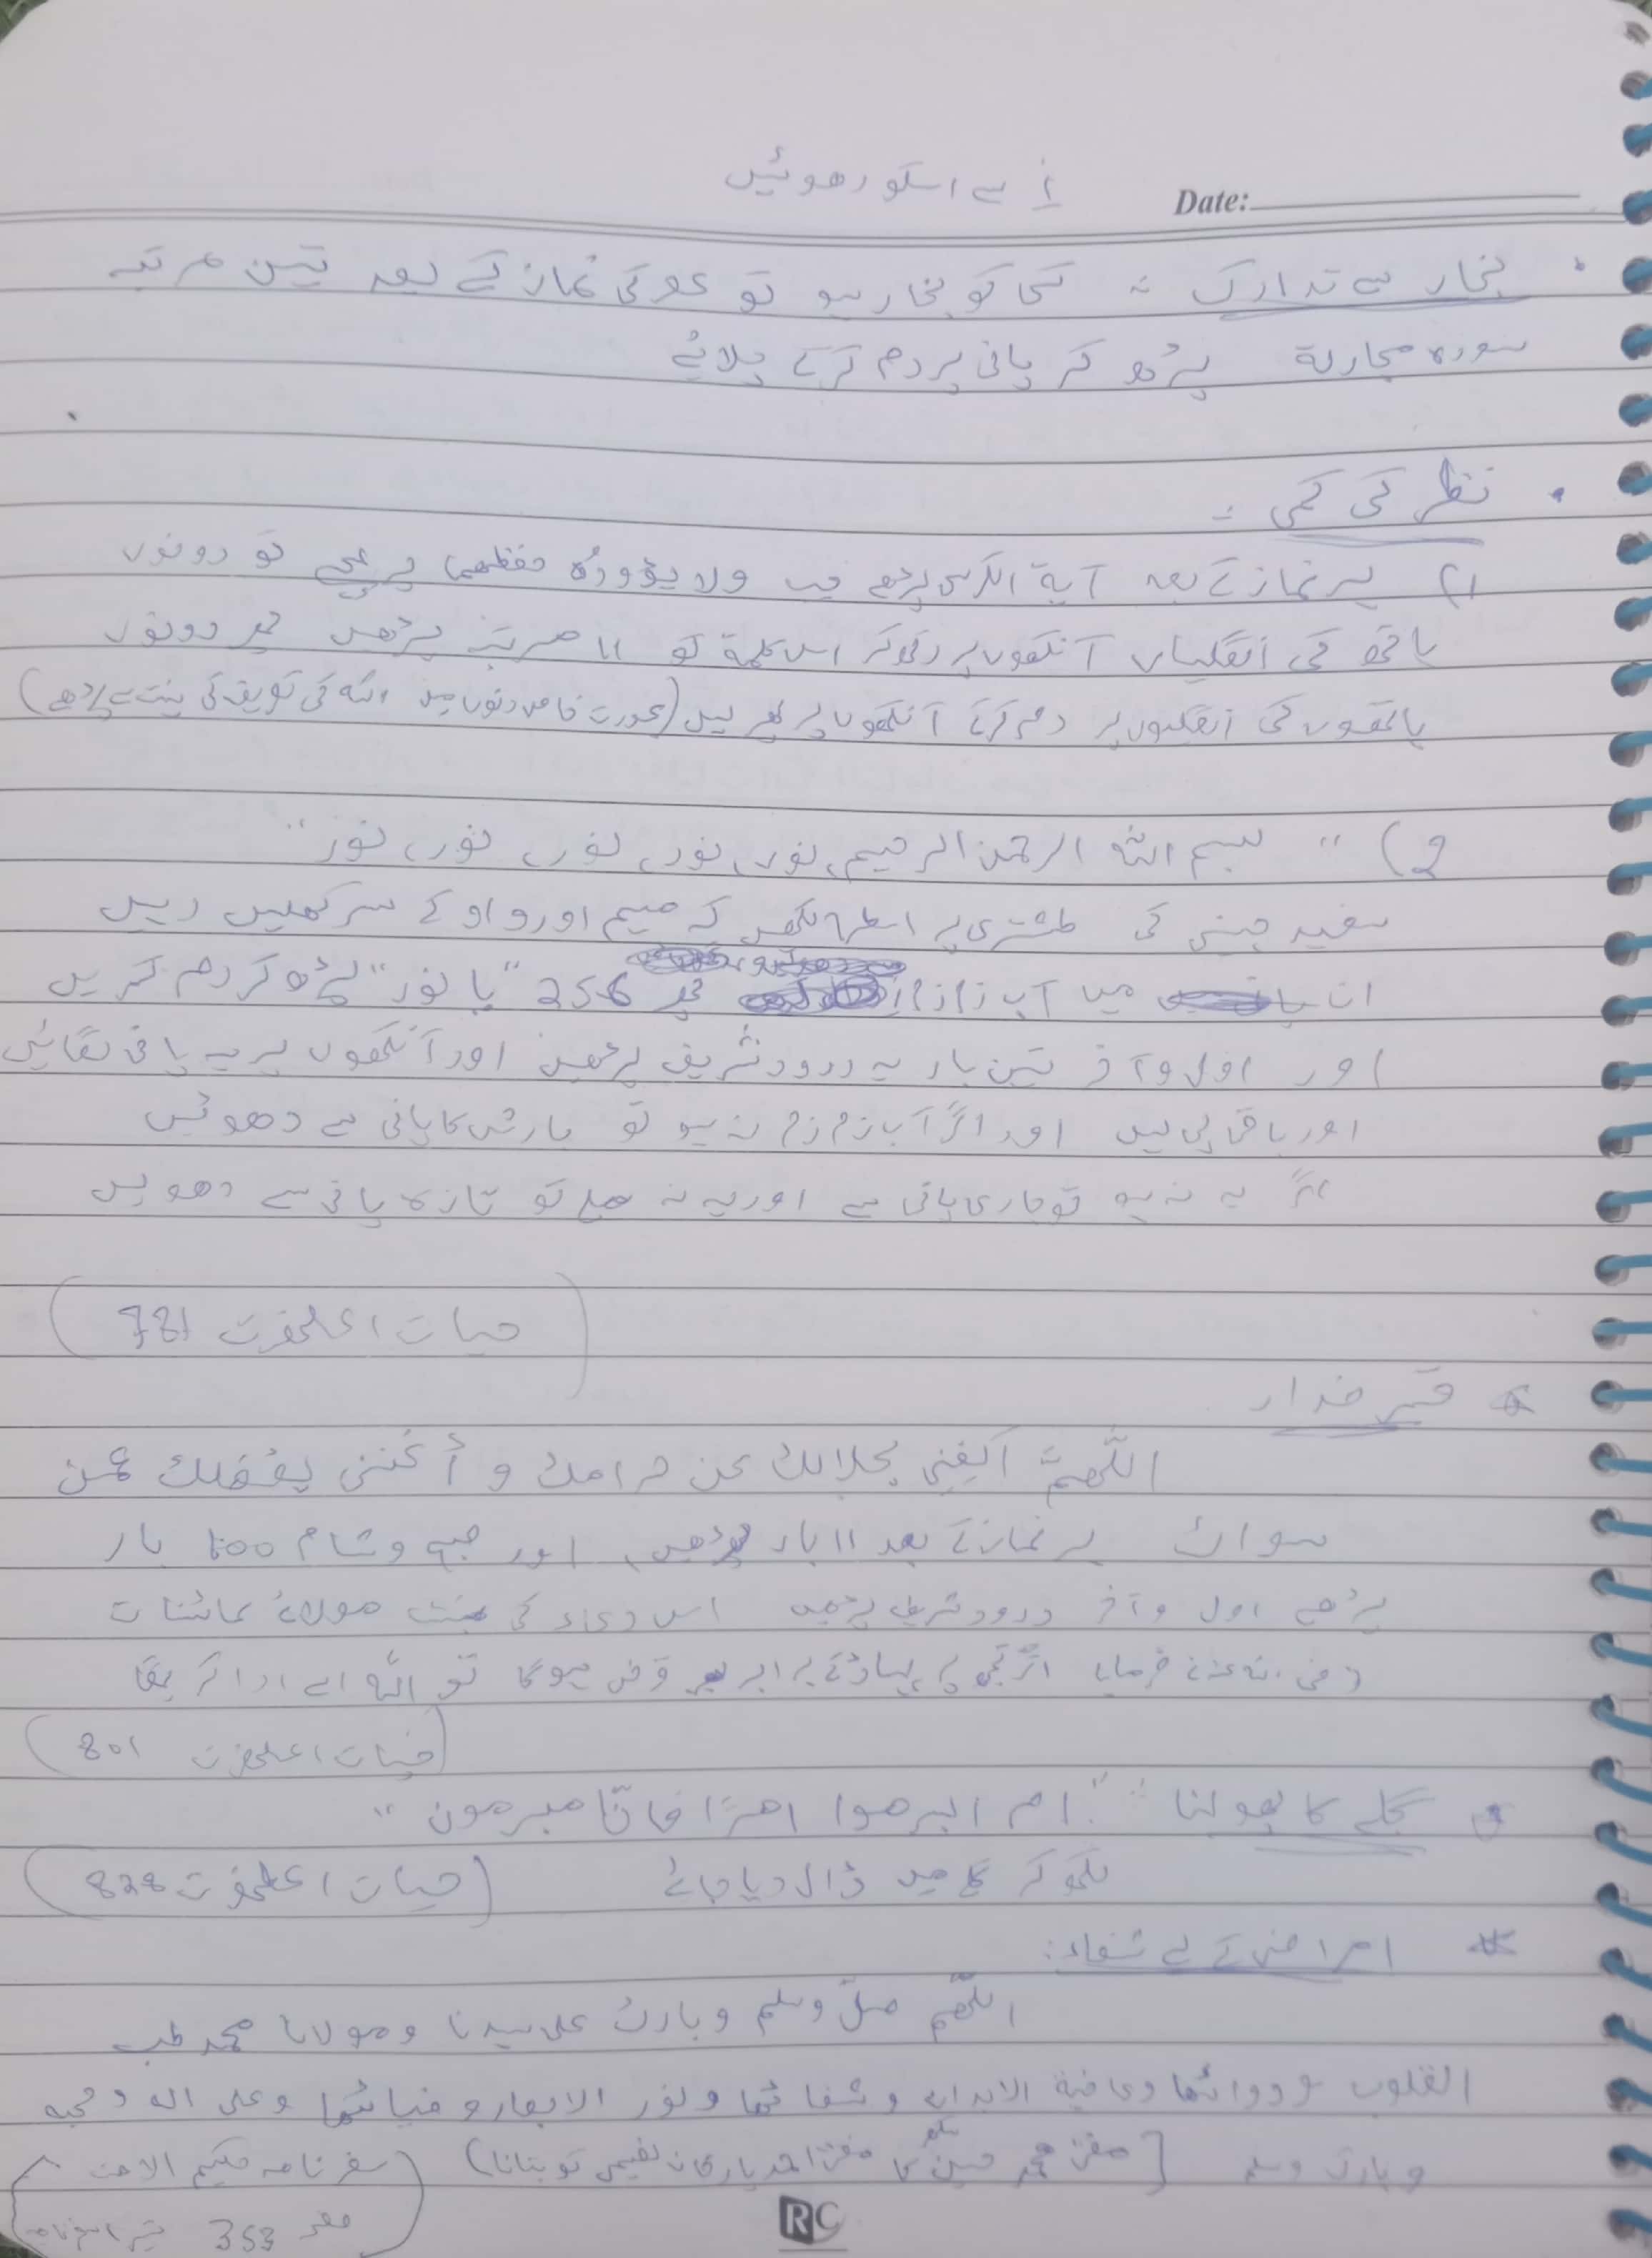 سے اسکو دھوئیں
Date:
• بخار سے تدارک :- کسی کو بخار ہو تو عصر کی نماز کے بعد تین مرتبہ
سورہ مجادلۃ پڑھ کر پانی پر دم کرکے پلائے
• نظر کی کمی :-
1) ہر نماز کے بعد آیۃ الکرسی پڑھے جب ولا یؤودہ حفظھما پر پہنچے تو دونوں
ہاتھ کی انگلیاں آنکھوں پر رکھ کر اس کلمۃ کو 11 مرتبہ پڑھیں پھر دونوں
ہاتھوں کی انگلیوں پر دم کرکے آنکھوں پر پھیر لیں (عورت خاص دنوں میں اللہ کی تعریف کی نیت سے پڑھے)
2) " بسم اللہ الرحمن الرحیم، نور، نور، نور، نور، نور "
سفید چینی کی طشتری پر اسطرح لکھیں کہ میم اور واو کے سر کھلیں رہیں
ان میں آب زم زم پھر 256 "یا نور" پڑھ کر دم کریں
اور اول و آخر تین بار یہ درود شریف پڑھیں اور آنکھوں پر یہ پانی لگائیں
اور باقی پی لیں اور اگر آب زم زم نہ ہو تو بارش کا پانی سے دھوئیں
اگر یہ نہ ہو تو جاری پانی سے اور یہ نہ ملے تو تازہ پانی سے دھویں
(حیات اعلحضرت 781)
اللّٰھمّ اکفنی بحلالک عن حرامک و أغننی بفضلک عمن
سواک ہر نماز کے بعد 11 بار پڑھیں، اور صبح و شام 100 بار
پڑھے اول و آخر درود شریف پڑھیں اس دعاء کی نسبت مولائے کائنات
رضی اللہ عنہ نے فرمایا اگر تجھ پر پہاڑ کے برابر بھی قرض ہوگا تو اللہ اسے ادا کریگا
(حیات اعلحضرت 801)
• گلے کا پھولنا :- " ام ابرموا امرًا فانّا مبرمون "
لکھ کر گلے میں ڈال دیا جائے (حیات اعلحضرت 828)
* امراض کے لیے شفاء:
اللّٰھم صلّ وسلم وبارک علی سیدنا ومولانا محمد طب
القلوب و دوائھا وعافیۃ الابدان و شفائھا ونور الابصار و ضیائھا وعلی الہ وصحبہ
وبارک وسلم [مفتی محمد حسین کا مفتی احمد یار خان نعیمی کو بتانا) (سفر نامہ حکیم الامت
353
RC